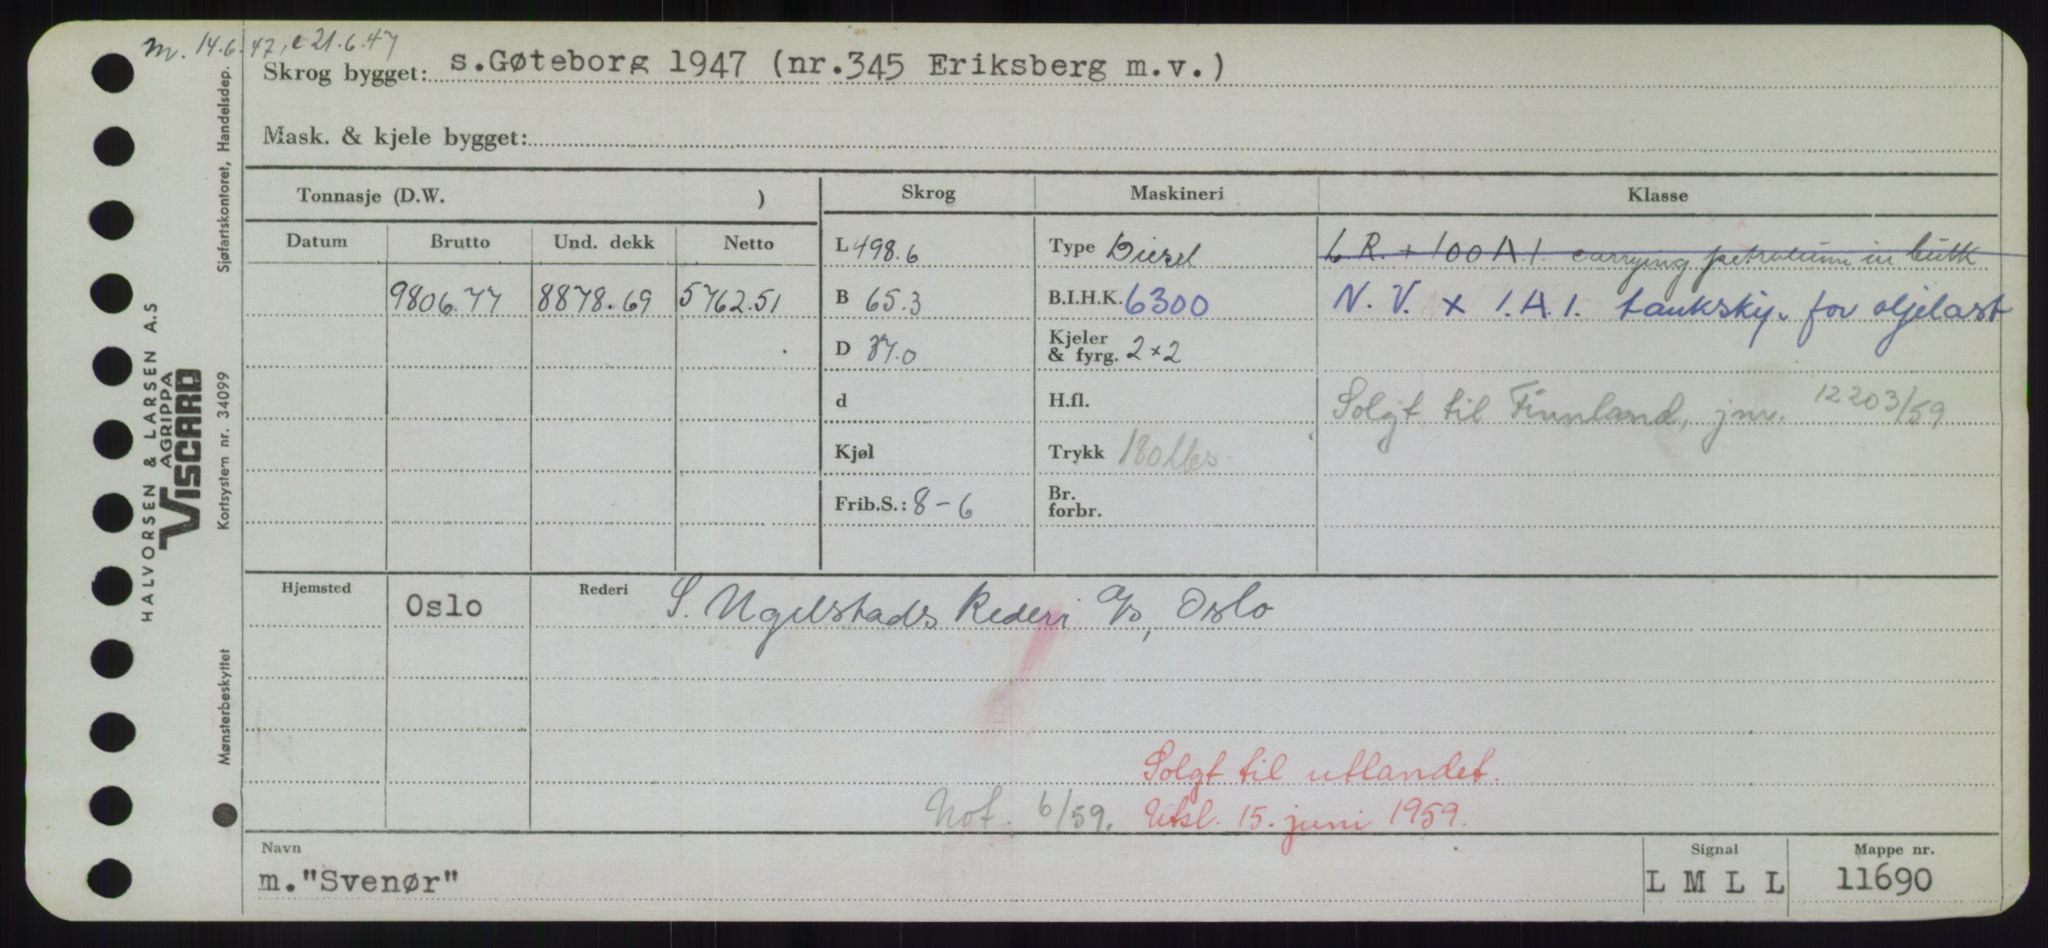 m. 14.6.47, e 21.6.47
Skrog bygget: s.Gøteborg 1947 (nr.345 Eriksberg m.v.)
Mask. & kjele bygget:
Tonnasje (D.W. )
Skrog
Maskineri
Klasse
Datum Brutto Und. dekk Netto
9806.77 8878.69 5762.51
L 498.6
B 65.3
D 37.0
d
Kjøl
Frib.S.: 8-6
Type Diesel
B.I.H.K. 6300
Kjeler
& fyrg. 2x2
H.fl.
Trykk 180 lbs
Br.
forbr.
L.R. + 100 A 1 carrying petroleum in bulk
N.V. x 1.A.1. tankskip for oljelast
Solgt til Finnland, jnr. 12203/59
Hjemsted Oslo
Rederi S. Ugelstads Rederi A/S, Oslo
Solgt til utlandet.
Not. 6/59. Utsl. 15. juni 1959.
Navn
m."Svenør"
Signal
L M L L
Mappe nr.
11690
HALVORSEN & LARSEN A.S
AGRIPPA
VISCARD
Sjøfartskontoret, Handelsdep.
Kortsystem nr. 34099
Mønsterbeskyttet